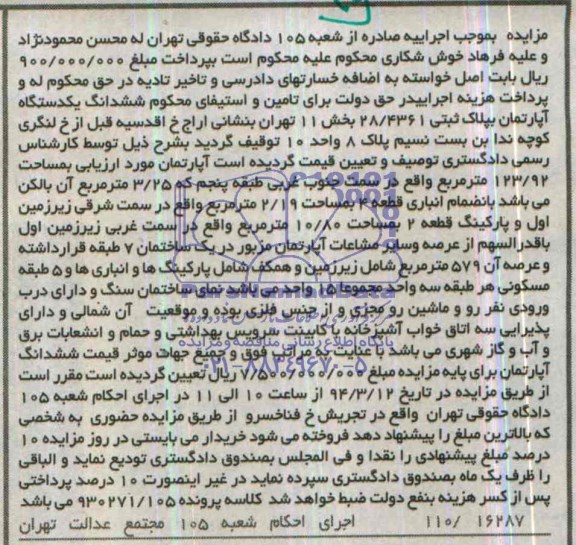 مزایده بموجب اجراییه صادره از شعبه ۱۰۵ دادگاه حقوقی تهران له محسن محمودنژاد
و علیه فرهاد خوش شکاری محکوم علیه محکوم است بپرداخت مبلغ ۹۰۰/۰۰۰/۰۰۰
ریال بابت اصل خواسته به اضافه خسارتهای دادرسی و تاخیر تادیه در حق محکوم له و
پرداخت هزینه اجراییدر حق دولت برای تامین و استیفای محکوم ششدانگ یکدستگاه
آپارتمان بپلاک ثبتی ۲۸/۴۳۶۱ بخش ۱۱ تهران بنشانی اراج خ اقدسیه قبل از خ لنگری
کوچه ندا بن بست نسیم پلاک ۸ واحد ۱۰ توقیف گردید بشرح ذیل توسط کارشناس
رسمی دادگستری توصیف و تعیین قیمت گردیده است آپارتمان مورد ارزیابی بمساحت
۱۲۳/۹۲ مترمربع واقع در سمت جنوب غربی طبقه پنجم که ۳/۲۵ مترمربع آن بالکن
می باشد بانضمام انباری قطعه ۴ بمساحت ۲/۱۹ مترمربع واقع در سمت شرقی زیرزمین
اول و پارکینگ قطعه ۲ بمساحت ۱۰/۸۰ مترمربع واقع در سمت غربی زیرزمین اول
باقدرالسهم از عرصه وسایر مشاعات آپارتمان مزبور در یک ساختمان ۷ طبقه قرارداشته
و عرصه آن ۵۷۹ مترمربع شامل زیرزمین و همکف شامل پارکینگ ها و انباری ها و ۵ طبقه
مسکونی هر طبقه سه واحد مجموعا ۱۵ واحد می باشد نمای ساختمان سنگ و دارای درب
ورودی نفر رو و ماشین رو مجزی و از جنس فلزی بوده و موقعیت آن شمالی و دارای
پذیرایی سه اتاق خواب آشپزخانه با کابینت سرویس بهداشتی و حمام و انشعابات برق
و آب و گاز شهری می باشد با عنایت به مراتب فوق و جمیع جهات موثر قیمت ششدانگ
آپارتمان برای پایه مزایده مبلغ ۷/۵۰۰/۰۰۰/۰۰۰ ریال تعیین گردیده است مقرر است
از طریق مزایده در تاریخ ۹۴/۳/۱۲ از ساعت ۱۰ الی ۱۱ در اجرای احکام شعبه ۱۰۵
دادگاه حقوقی تهران واقع در تجریش خ فناخسرو از طریق مزایده حضوری به شخصی
که بالاترین مبلغ را پیشنهاد دهد فروخته می شود خریدار می بایستی در روز مزایده ۱۰
درصد مبلغ پیشنهادی را نقدا و فی المجلس بصندوق دادگستری تودیع نماید و الباقی
را ظرف یک ماه بصندوق دادگستری سپرده نماید در غیر اینصورت ۱۰ درصد پرداختی
پس از کسر هزینه بنفع دولت ضبط خواهد شد کلاسه پرونده ۹۳۰۲۷۱/۱۰۵ می باشد
۱۱۰/ ۱۶۲۸۷ اجرای احکام شعبه ۱۰۵ مجتمع عدالت تهران
پایگاه اطلاع رسانی مناقصه و مزایده
۰۲۱-۸۸۳۴۹۶۷۰-۵